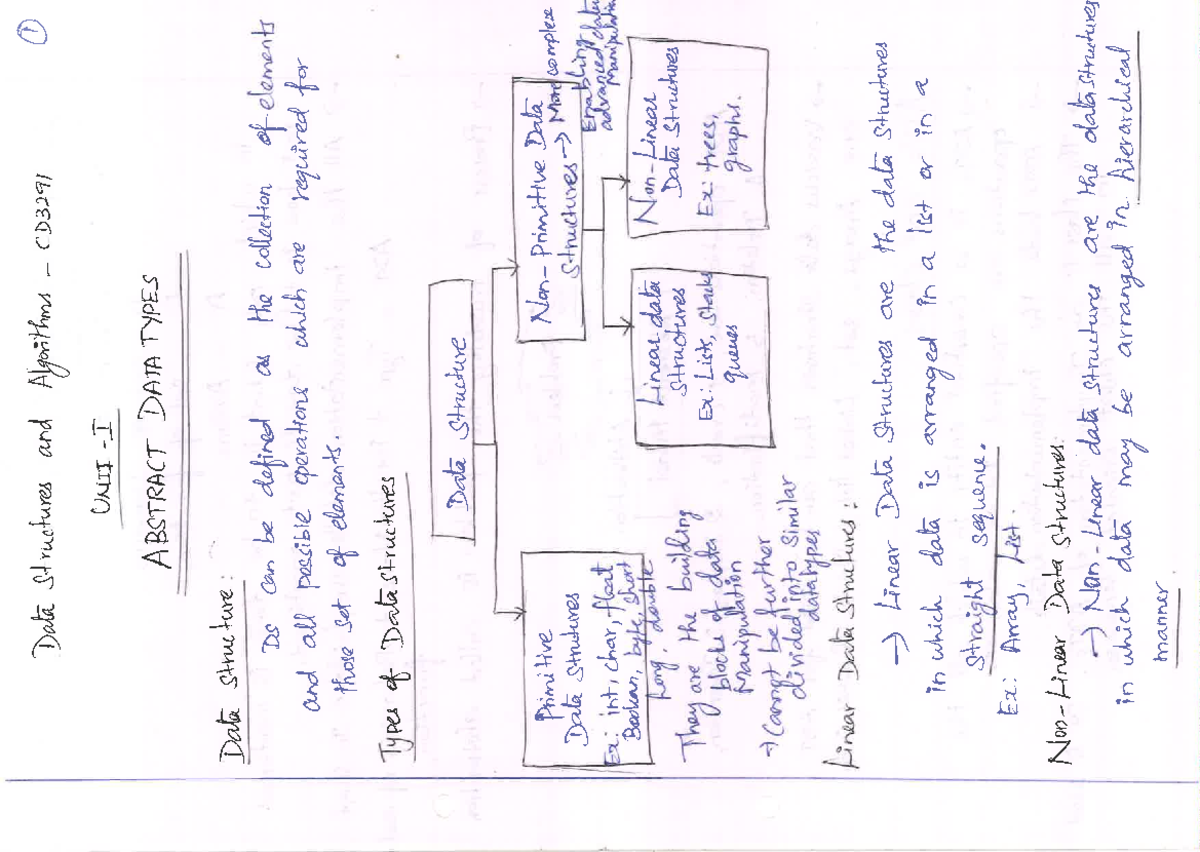 ①
Data Structures and Algorithms - CD3291
UNIT - I
ABSTRACT DATA TYPES
Data Structure:
Ds can be defined as the collection of elements
and all possible operations which are required for
those set of elements.
Types of Data Structures
Data Structure
Primitive
Data Strutures
Ex: int, char, float
Boolean, byte, short
long, double
They are the building
blocks of data
Manipulation
→ Cannot be further
divided into similar
datatypes
Non-Primitive Data
Structures → More complex
Enabling
advanced data
Manipulation
Linear data
Structures
Ex: Lists, Stacks
queues
Non-Linear
Data Structures
Ex: trees,
graphs.
Linear Data Structures:
→ Linear Data Structures are the data structures
in which data is arranged in a list or in a
straight sequence.
Ex: Array, List.
Non-Linear Data Structures:
→ Non-Linear data structures are the data structures
in which data may be arranged in hierarchical
manner.